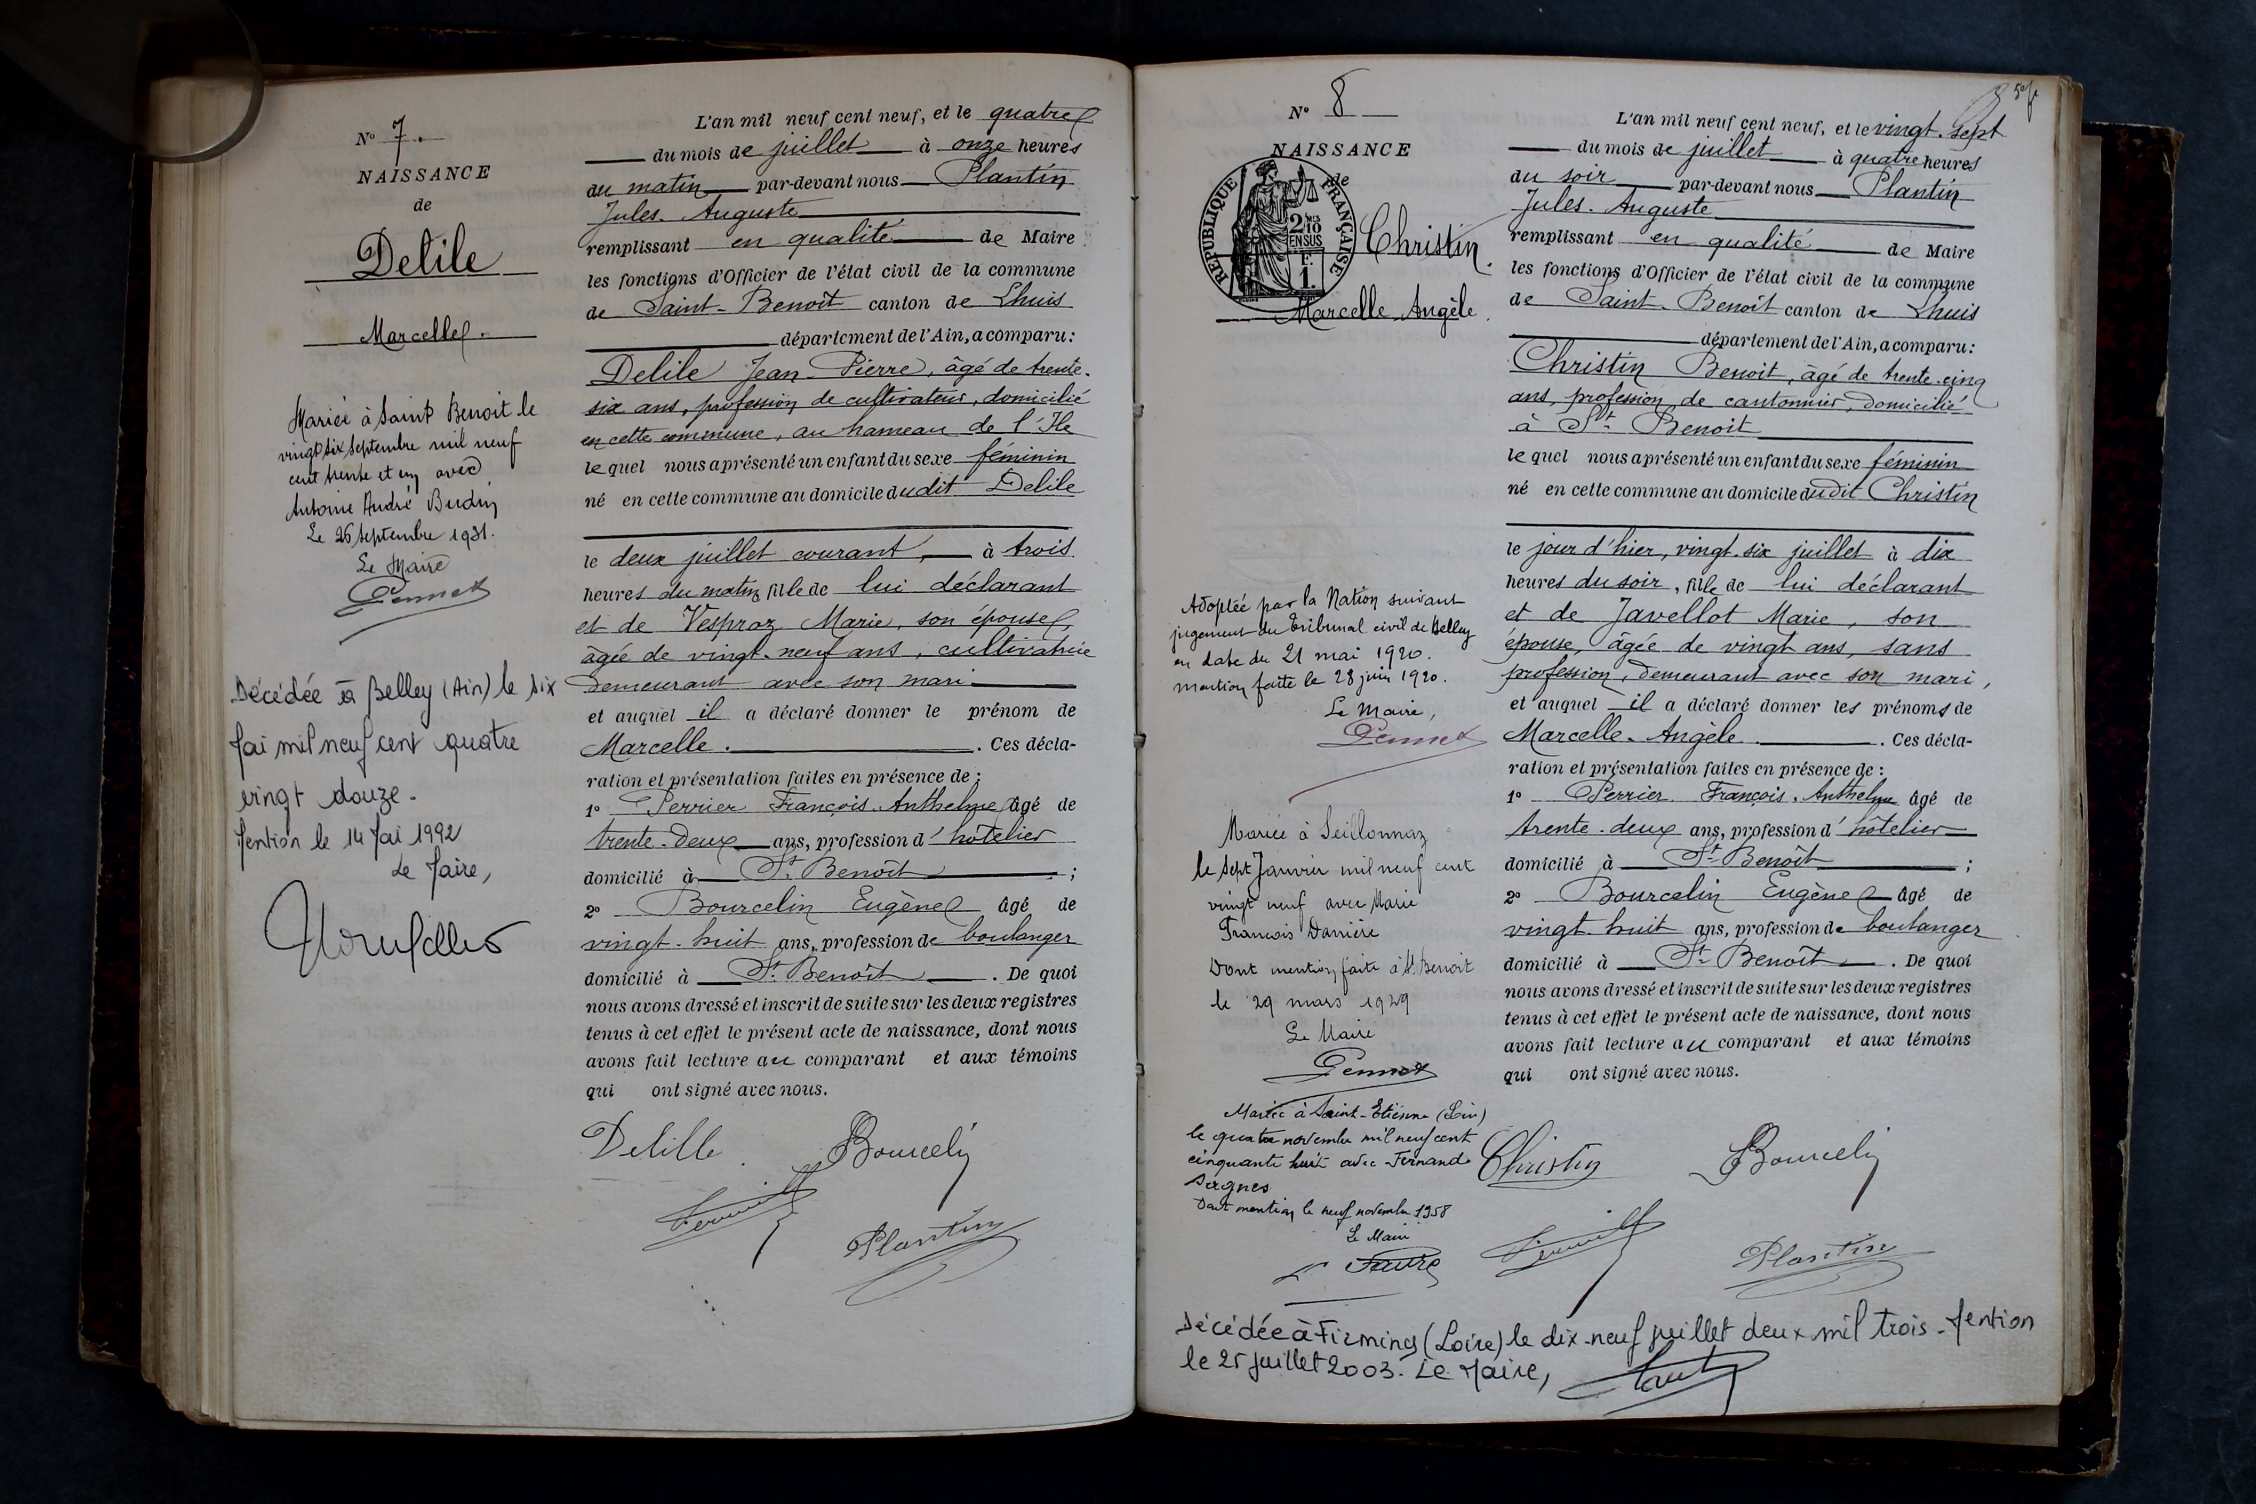 N° 7.
NAISSANCE
de
Delile
Marcelle.
Mariée à Saint Benoit le
vingt six septembre mil neuf
cent trente et un avec
Antoine André Budin
Le 26 septembre 1931.
Le Maire
Pennet
Décédée à Belley (Ain) le six
Mai mil neuf cent quatre
vingt douze.
Mention le 14 Mai 1992
Le Maire,
L'an mil neuf cent neuf, et le quatre
du mois de juillet à onze heures
du matin par-devant nous Plantin
Jules. Auguste
remplissant en qualité de Maire
les fonctions d'Officier de l'état civil de la commune
de Saint-Benoît canton de Lhuis
département de l'Ain, a comparu:
Delile Jean-Pierre, âgé de trente-
six ans, profession de cultivateur, domicilié
en cette commune, au hameau de l'Ile
lequel nous a présenté un enfant du sexe féminin
né en cette commune au domicile dudit Delile
le deux juillet courant, à trois
heures du matin, fille de lui déclarant
et de Vespraz Marie, son épouse,
âgée de vingt-neuf ans, cultivatrice
demeurant avec son mari
et auquel il a déclaré donner le prénom de
Marcelle. . Ces décla-
ration et présentation faites en présence de:
1° Perrier François-Anthelme âgé de
trente-deux ans, profession d'hôtelier
domicilié à St Benoît ;
2° Bourcelin Eugène âgé de
vingt-huit ans, profession de boulanger
domicilié à St Benoît . De quoi
nous avons dressé et inscrit de suite sur les deux registres
tenus à cet effet le présent acte de naissance, dont nous
avons fait lecture au comparant et aux témoins
qui ont signé avec nous.
Delille Bourcelin
Plantin
N° 8
NAISSANCE
de
REPUBLIQUE FRANÇAISE
2/10 EN SUS
F. 1.
Christin.
Marcelle Angèle.
Adoptée par la Nation suivant
jugement du Tribunal civil de Belley
en date du 21 mai 1920.
Mention faite le 28 juin 1920.
Le Maire,
Pennet
Mariée à Seillonnaz
le sept Janvier mil neuf cent
vingt neuf avec Marie
François Danière
Dont mention faite à St Benoit
le 29 mars 1929
Le Maire
Pennet
Mariée à Saint-Etienne (Loire)
le quatre novembre mil neuf cent
cinquante huit avec Fernand
Sagnes
Dont mention le neuf novembre 1958
Le Maire
Favre
L'an mil neuf cent neuf, et le vingt-sept
du mois de juillet à quatre heures
du soir par-devant nous Plantin
Jules. Auguste
remplissant en qualité de Maire
les fonctions d'Officier de l'état civil de la commune
de Saint-Benoît canton de Lhuis
département de l'Ain, a comparu:
Christin Benoit, âgé de trente-cinq
ans, profession de cantonnier, domicilié
à St Benoit
lequel nous a présenté un enfant du sexe féminin
né en cette commune au domicile dudit Christin
le jour d'hier, vingt-six juillet à dix
heures du soir, fille de lui déclarant
et de Javellot Marie, son
épouse, âgée de vingt ans, sans
profession, demeurant avec son mari,
et auquel il a déclaré donner les prénoms de
Marcelle-Angèle . Ces décla-
ration et présentation faites en présence de:
1° Perrier François-Anthelme âgé de
trente-deux ans, profession d'hôtelier
domicilié à St Benoît ;
2° Bourcelin Eugène âgé de
vingt-huit ans, profession de boulanger
domicilié à St Benoît . De quoi
nous avons dressé et inscrit de suite sur les deux registres
tenus à cet effet le présent acte de naissance, dont nous
avons fait lecture au comparant et aux témoins
qui ont signé avec nous.
Christin Bourcelin
Plantin
Décédée à Firminy (Loire) le dix-neuf juillet deux mil trois. Mention
le 25 juillet 2003. Le Maire,